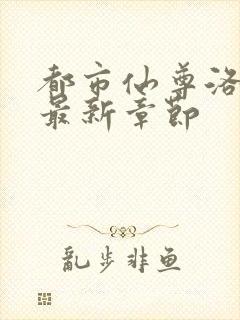 都市仙尊洛
最新章节
乱步非鱼